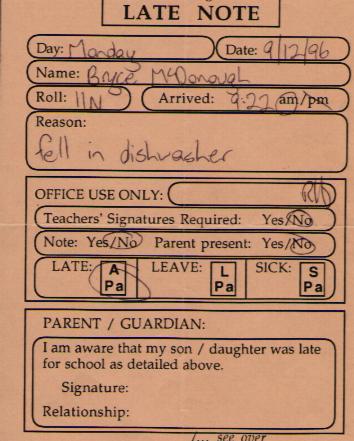 LATE NOTE
Day: Monday Date: 9/12/96
Name: Bryce McDonough
Roll: 11N Arrived: 9:22 am/pm
Reason:
fell in dishwasher
OFFICE USE ONLY:
Teachers' Signatures Required: Yes/No
Note: Yes/No Parent present: Yes/No
LATE: A Pa LEAVE: L Pa SICK: S Pa
PARENT / GUARDIAN:
I am aware that my son / daughter was late
for school as detailed above.
Signature:
Relationship:
/... see over